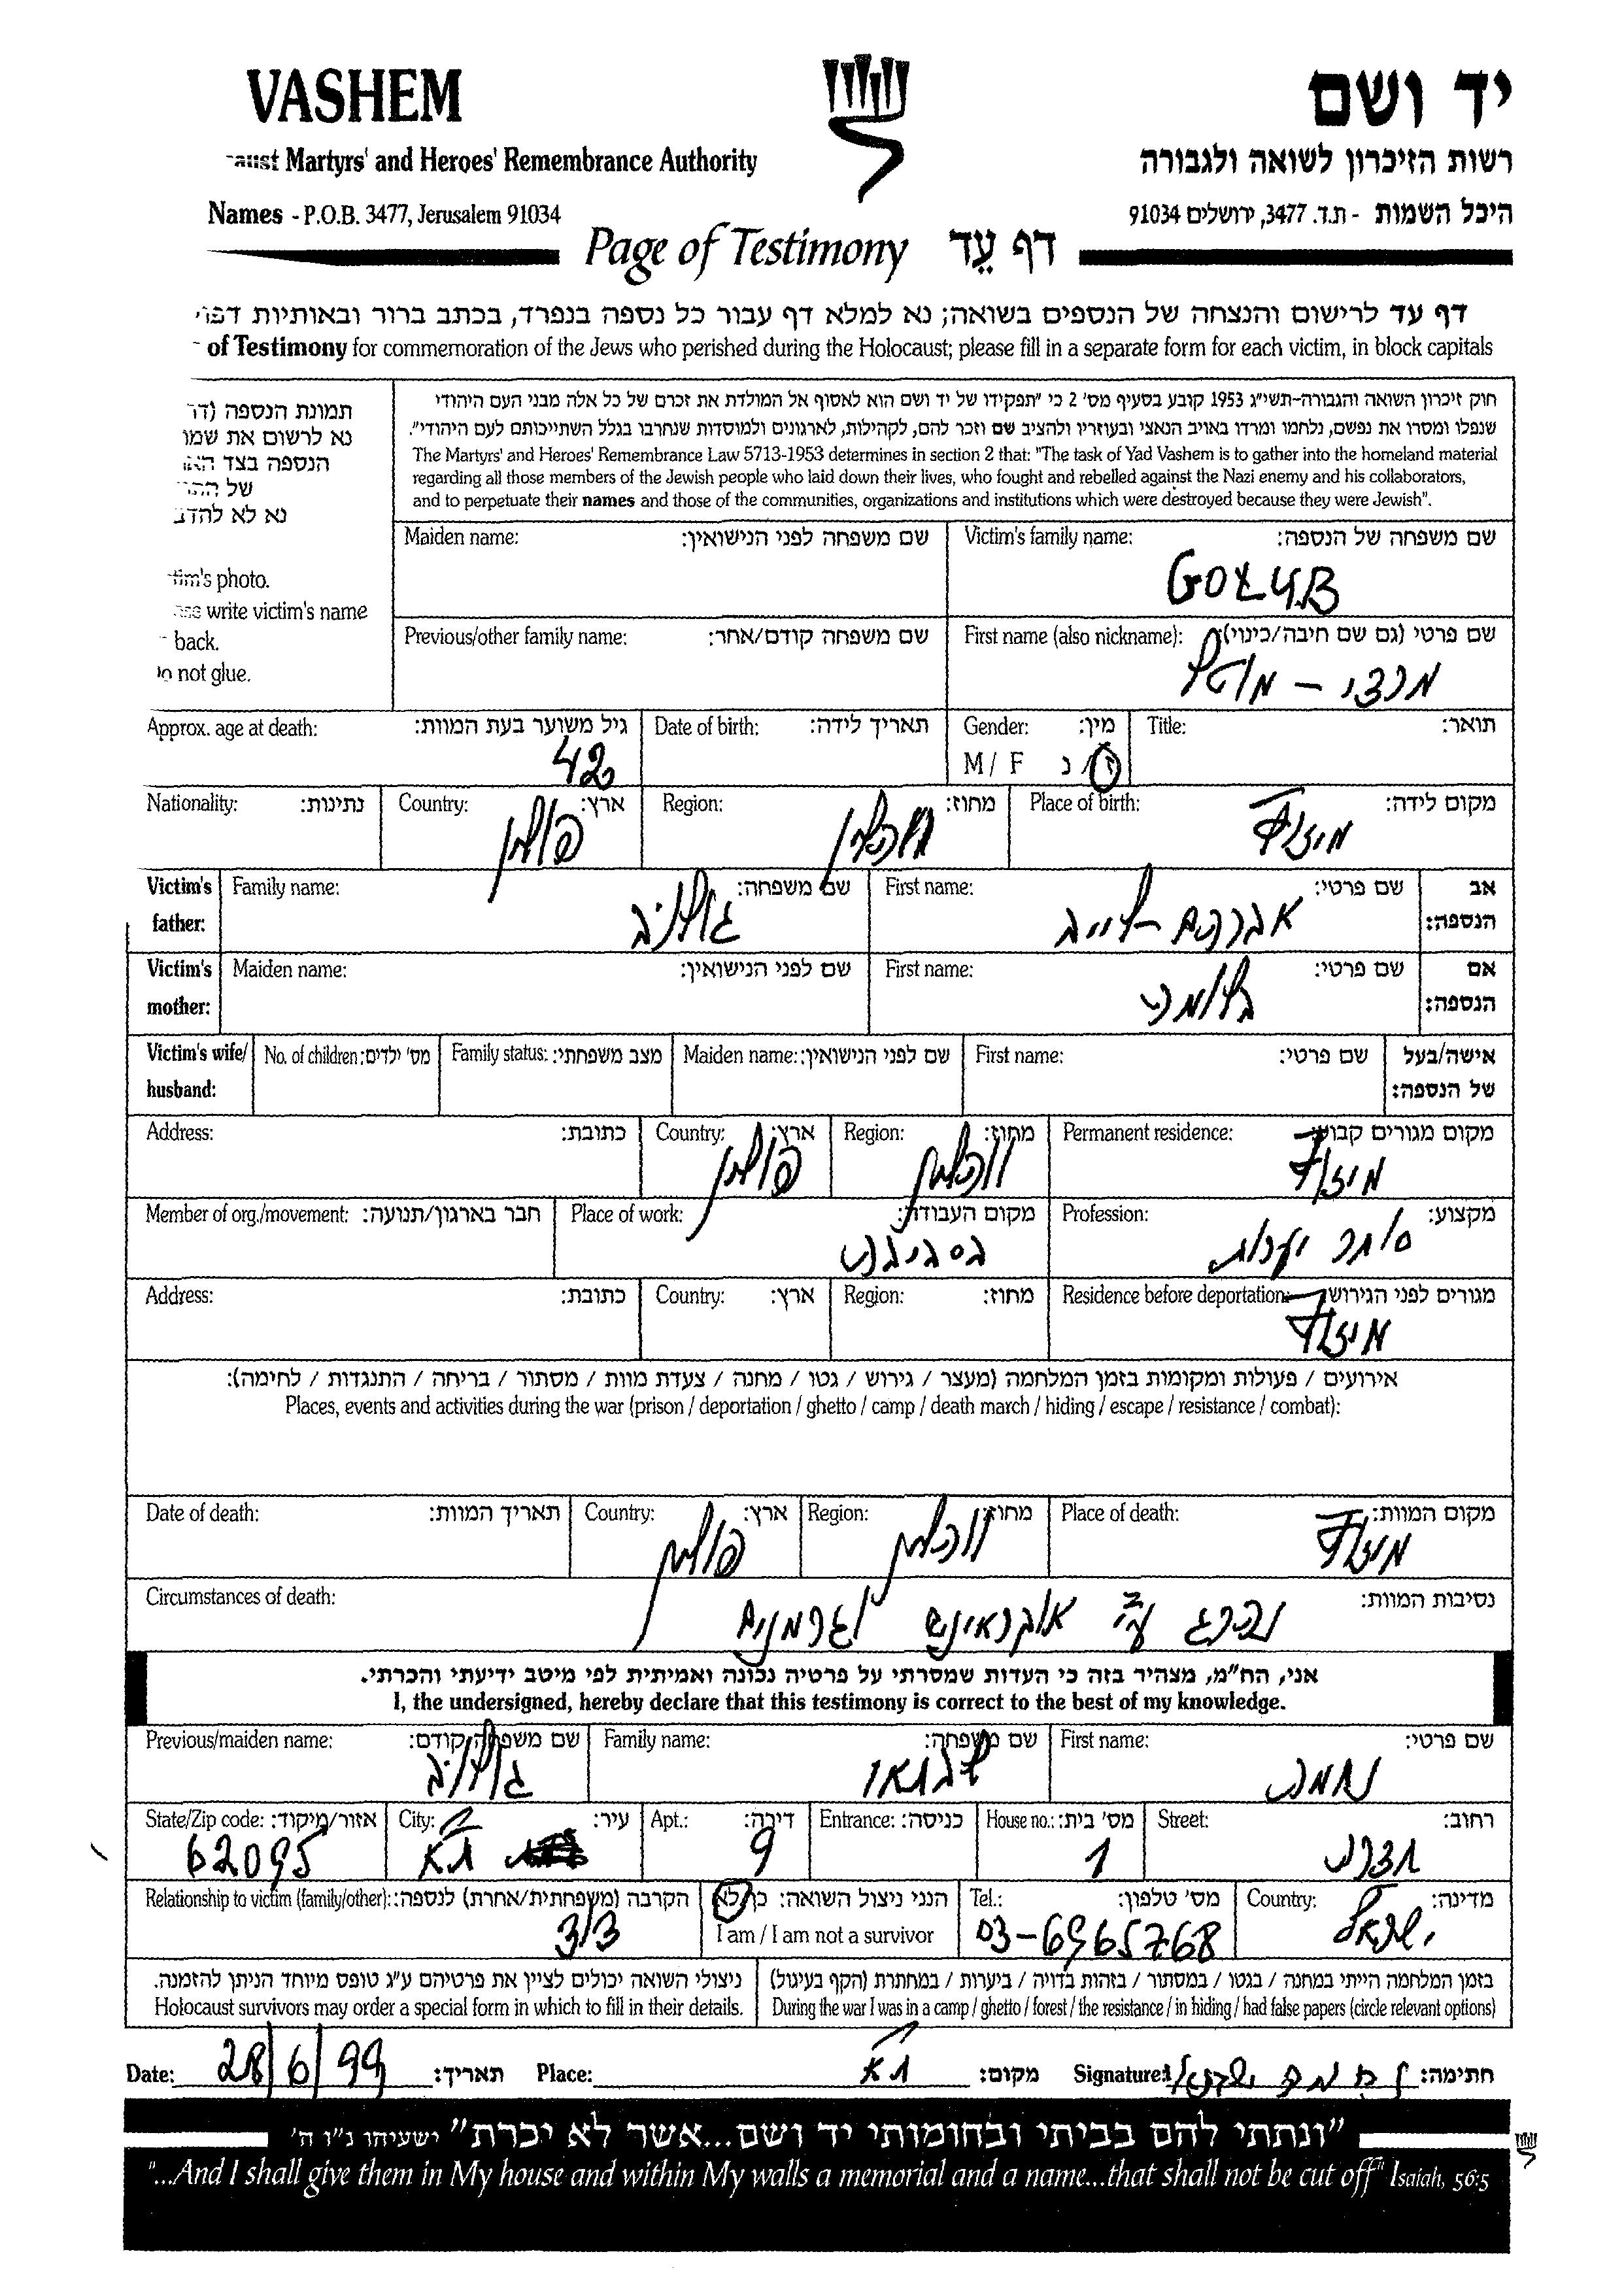 VASHEM
יד ושם
Martyrs' and Heroes' Remembrance Authority
רשות הזיכרון לשואה ולגבורה
Names - P.O.B. 3477, Jerusalem 91034
היכל השמות - ת.ד. 3477, ירושלים 91034
Page of Testimony דף עֵד
דף עד לרישום והנצחה של הנספים בשואה; נא למלא דף עבור כל נספה בנפרד, בכתב ברור ובאותיות
of Testimony for commemoration of the Jews who perished during the Holocaust; please fill in a separate form for each victim, in block capitals
תמונת הנספה
נא לרשום את שמו
הנספה בצד
של
נא לא
photo.
write victim's name
back.
not glue.
חוק זיכרון השואה והגבורה-תשי"ג 1953 קובע בסעיף מס' 2 כי "תפקידו של יד ושם הוא לאסוף אל המולדת את זכרם של כל אלה מבני העם היהודי
שנפלו ומסרו את נפשם, נלחמו ומרדו באויב הנאצי ובעוזריו ולהציב שם וזכר להם, לקהילות, לארגונים ולמוסדות שנחרבו בגלל השתייכותם לעם היהודי".
The Martyrs' and Heroes' Remembrance Law 5713-1953 determines in section 2 that: "The task of Yad Vashem is to gather into the homeland material
regarding all those members of the Jewish people who laid down their lives, who fought and rebelled against the Nazi enemy and his collaborators,
and to perpetuate their names and those of the communities, organizations and institutions which were destroyed because they were Jewish".
Maiden name: שם משפחה לפני הנישואין:
Victim's family name: שם משפחה של הנספה:
GOLUB
Previous/other family name: שם משפחה קודם/אחר:
First name (also nickname): שם פרטי (גם שם חיבה/כינוי):
מוטל
Approx. age at death: גיל משוער בעת המוות:
42
Date of birth: תאריך לידה:
Gender: מין:
M / F ז/נ
Title: תואר:
Nationality: נתינות:
Country: ארץ:
פולין
Region: מחוז:
ווהלין
Place of birth: מקום לידה:
מיזוץ
Victim's father: אב הנספה:
Family name: שם משפחה:
גולוב
First name: שם פרטי:
אברהם - לייב
Victim's mother: אם הנספה:
Maiden name: שם לפני הנישואין:
First name: שם פרטי:
Victim's wife/ husband: אישה/בעל של הנספה:
No. of children: מס' ילדים:
Family status: מצב משפחתי:
Maiden name: שם לפני הנישואין:
First name: שם פרטי:
Address: כתובת:
Country: ארץ:
פולין
Region: מחוז:
ווהלין
Permanent residence: מקום מגורים קבוע:
מיזוץ
Member of org./movement: חבר בארגון/תנועה:
Place of work: מקום העבודה:
בסביבה
Profession: מקצוע:
סוחר יערות
Address: כתובת:
Country: ארץ:
Region: מחוז:
Residence before deportation: מגורים לפני הגירוש:
מיזוץ
אירועים / פעולות ומקומות בזמן המלחמה (מעצר / גירוש / גטו / מחנה / צעדת מוות / מסתור / בריחה / התנגדות / לחימה):
Places, events and activities during the war (prison / deportation / ghetto / camp / death march / hiding / escape / resistance / combat):
Date of death: תאריך המוות:
Country: ארץ:
פולין
Region: מחוז:
ווהלין
Place of death: מקום המוות:
מיזוץ
Circumstances of death: נסיבות המוות:
נהרג ע"י אוקראינים וגרמנים
אני, הח"מ, מצהיר בזה כי העדות שמסרתי על פרטיה נכונה ואמיתית לפי מיטב ידיעתי והכרתי.
I, the undersigned, hereby declare that this testimony is correct to the best of my knowledge.
Previous/maiden name: שם משפחה קודם:
גולוב
Family name: שם משפחה:
First name: שם פרטי:
נחמה
State/Zip code: אזור/מיקוד:
62095
City: עיר:
ת"א
Apt.: דירה:
9
Entrance: כניסה:
House no.: מס' בית:
1
Street: רחוב:
Relationship to victim (family/other): הקרבה (משפחתית/אחרת) לנספה:
דוד
הנני ניצול השואה: כן/לא
I am / I am not a survivor
Tel.: מס' טלפון:
03-6965768
Country: מדינה:
ישראל
ניצולי השואה יכולים לציין את פרטיהם ע"ג טופס מיוחד הניתן להזמנה.
Holocaust survivors may order a special form in which to fill in their details.
בזמן המלחמה הייתי במחנה / בגטו / במסתור / בזהות בדויה / ביערות / במחתרת (הקף בעיגול)
During the war I was in a camp / ghetto / forest / the resistance / in hiding / had false papers (circle relevant options)
Date: 28/6/99 תאריך:
Place: ת"א מקום:
Signature: חתימה:
"ונתתי להם בביתי ובחומותי יד ושם...אשר לא יכרת" ישעיהו נ"ו ה'
"...And I shall give them in My house and within My walls a memorial and a name...that shall not be cut off" Isaiah, 56:5